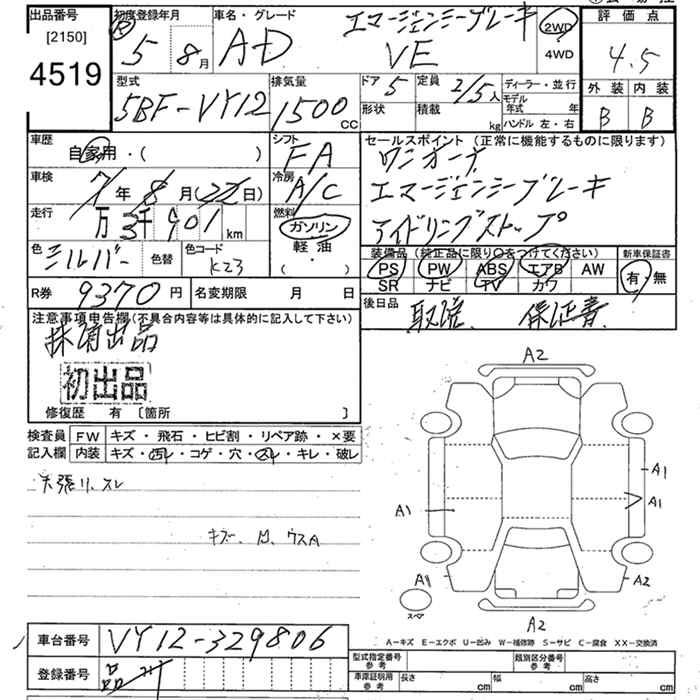 出品番号
[2150]
4519
初度登録年月
Ⓡ 5 年 8 月
車名・グレード
エマージェンシーブレーキ
AD VE
2WD
4WD
評価点
4.5
外装 内装
B B
型式
5BF-VY12
排気量
1500 CC
ドア 5
形状
定員 2/5人
積載 kg
ディーラー・並行
モデル年式 年
ハンドル 左・右
車歴
自家用・( )
シフト
FA
セールスポイント (正常に機能するものに限ります)
ワンオーナ
エマージェンシーブレーキ
アイドリングストップ
車検
7年 8月(22日)
冷房
A/C
走行
万 3千901 km
燃料
ガソリン
軽油
・
色 シルバー
色替
色コード K23
装備品 (純正品に限り○をつけてください)
PS PW ABS エアB AW
SR ナビ TV カワ
新車保証書
有・無
R券 9370円
名変期限 月 日
後日品 取説、保証書
注意事項申告欄(不具合内容等は具体的に記入して下さい)
抹消出品
初出品
修復歴 有 〔箇所 〕
検査員 FW キズ・飛石・ヒビ割・リペア跡・×要
記入欄 内装 キズ・汚レ・コゲ・穴・スレ・キレ・破レ
天張リ、スレ
キズ、凹、ウスA
A2
A1
A1
A1
A1
A2
スペア
A2
A-キズ E-エクボ U-凹み W-補修跡 S-サビ C-腐食 XX-交換済
車台番号 VY12-329806
登録番号
型式指定番号 参考
類別区分番号 参考
車庫証明用 参考
長さ cm
幅 cm
高さ cm